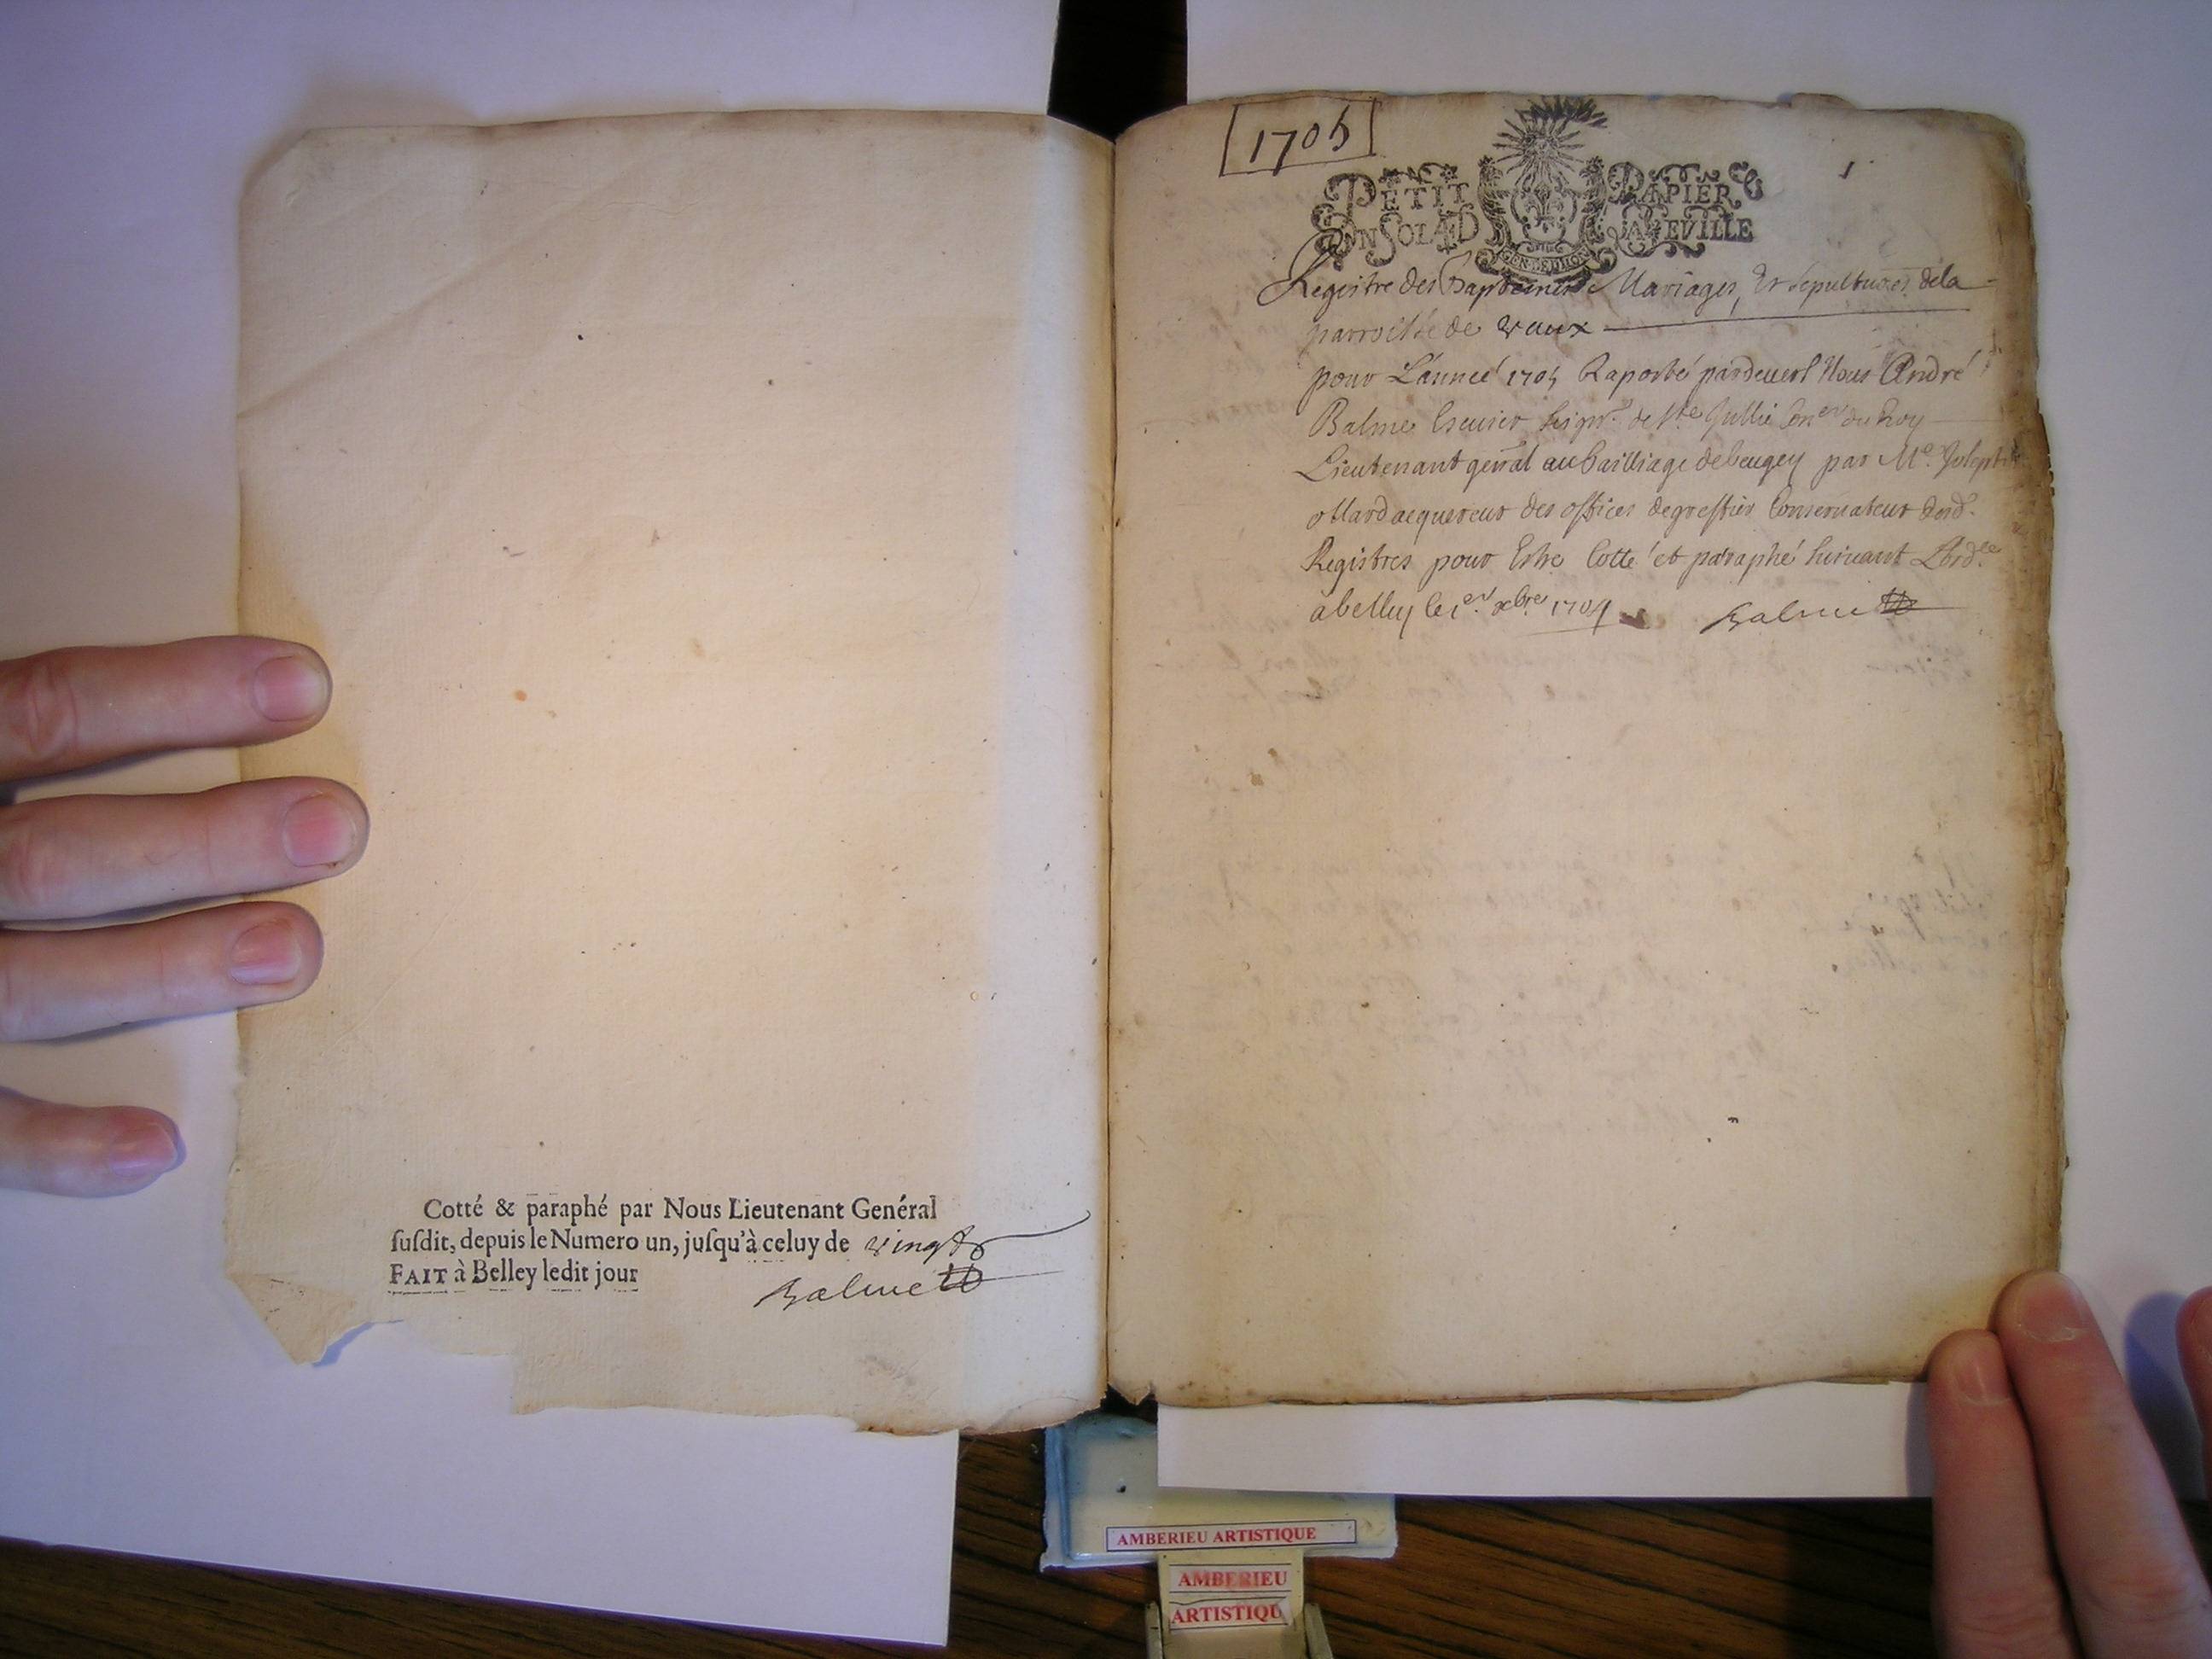 Cotté & paraphé par Nous Lieutenant Genéral
ſuſdit, depuis le Numero un, juſqu'à celuy de vingt
FAIT à Belley ledit jour
Balme
1705
1
PETIT PAPIER
UN SOL
GEN. DE DIJON
Registre des Baptesmes Mariages, Et sepultures dela
parroisse de vaux
pour L'année 1705 Raporté pardeuers Nous André
Balme Escuier seigr. de Ste Jullie Coner du Roy
Lieutenant genal au bailliage debeugey par Me. Joseph
ollard acquereur des offices degreffier Conseruateur desd.
Registres pour Estre Cotté et paraphé suiuant L'ordce
abelley le 1er xbre 1704 Balme
AMBERIEU ARTISTIQUE
AMBERIEU
ARTISTIQU